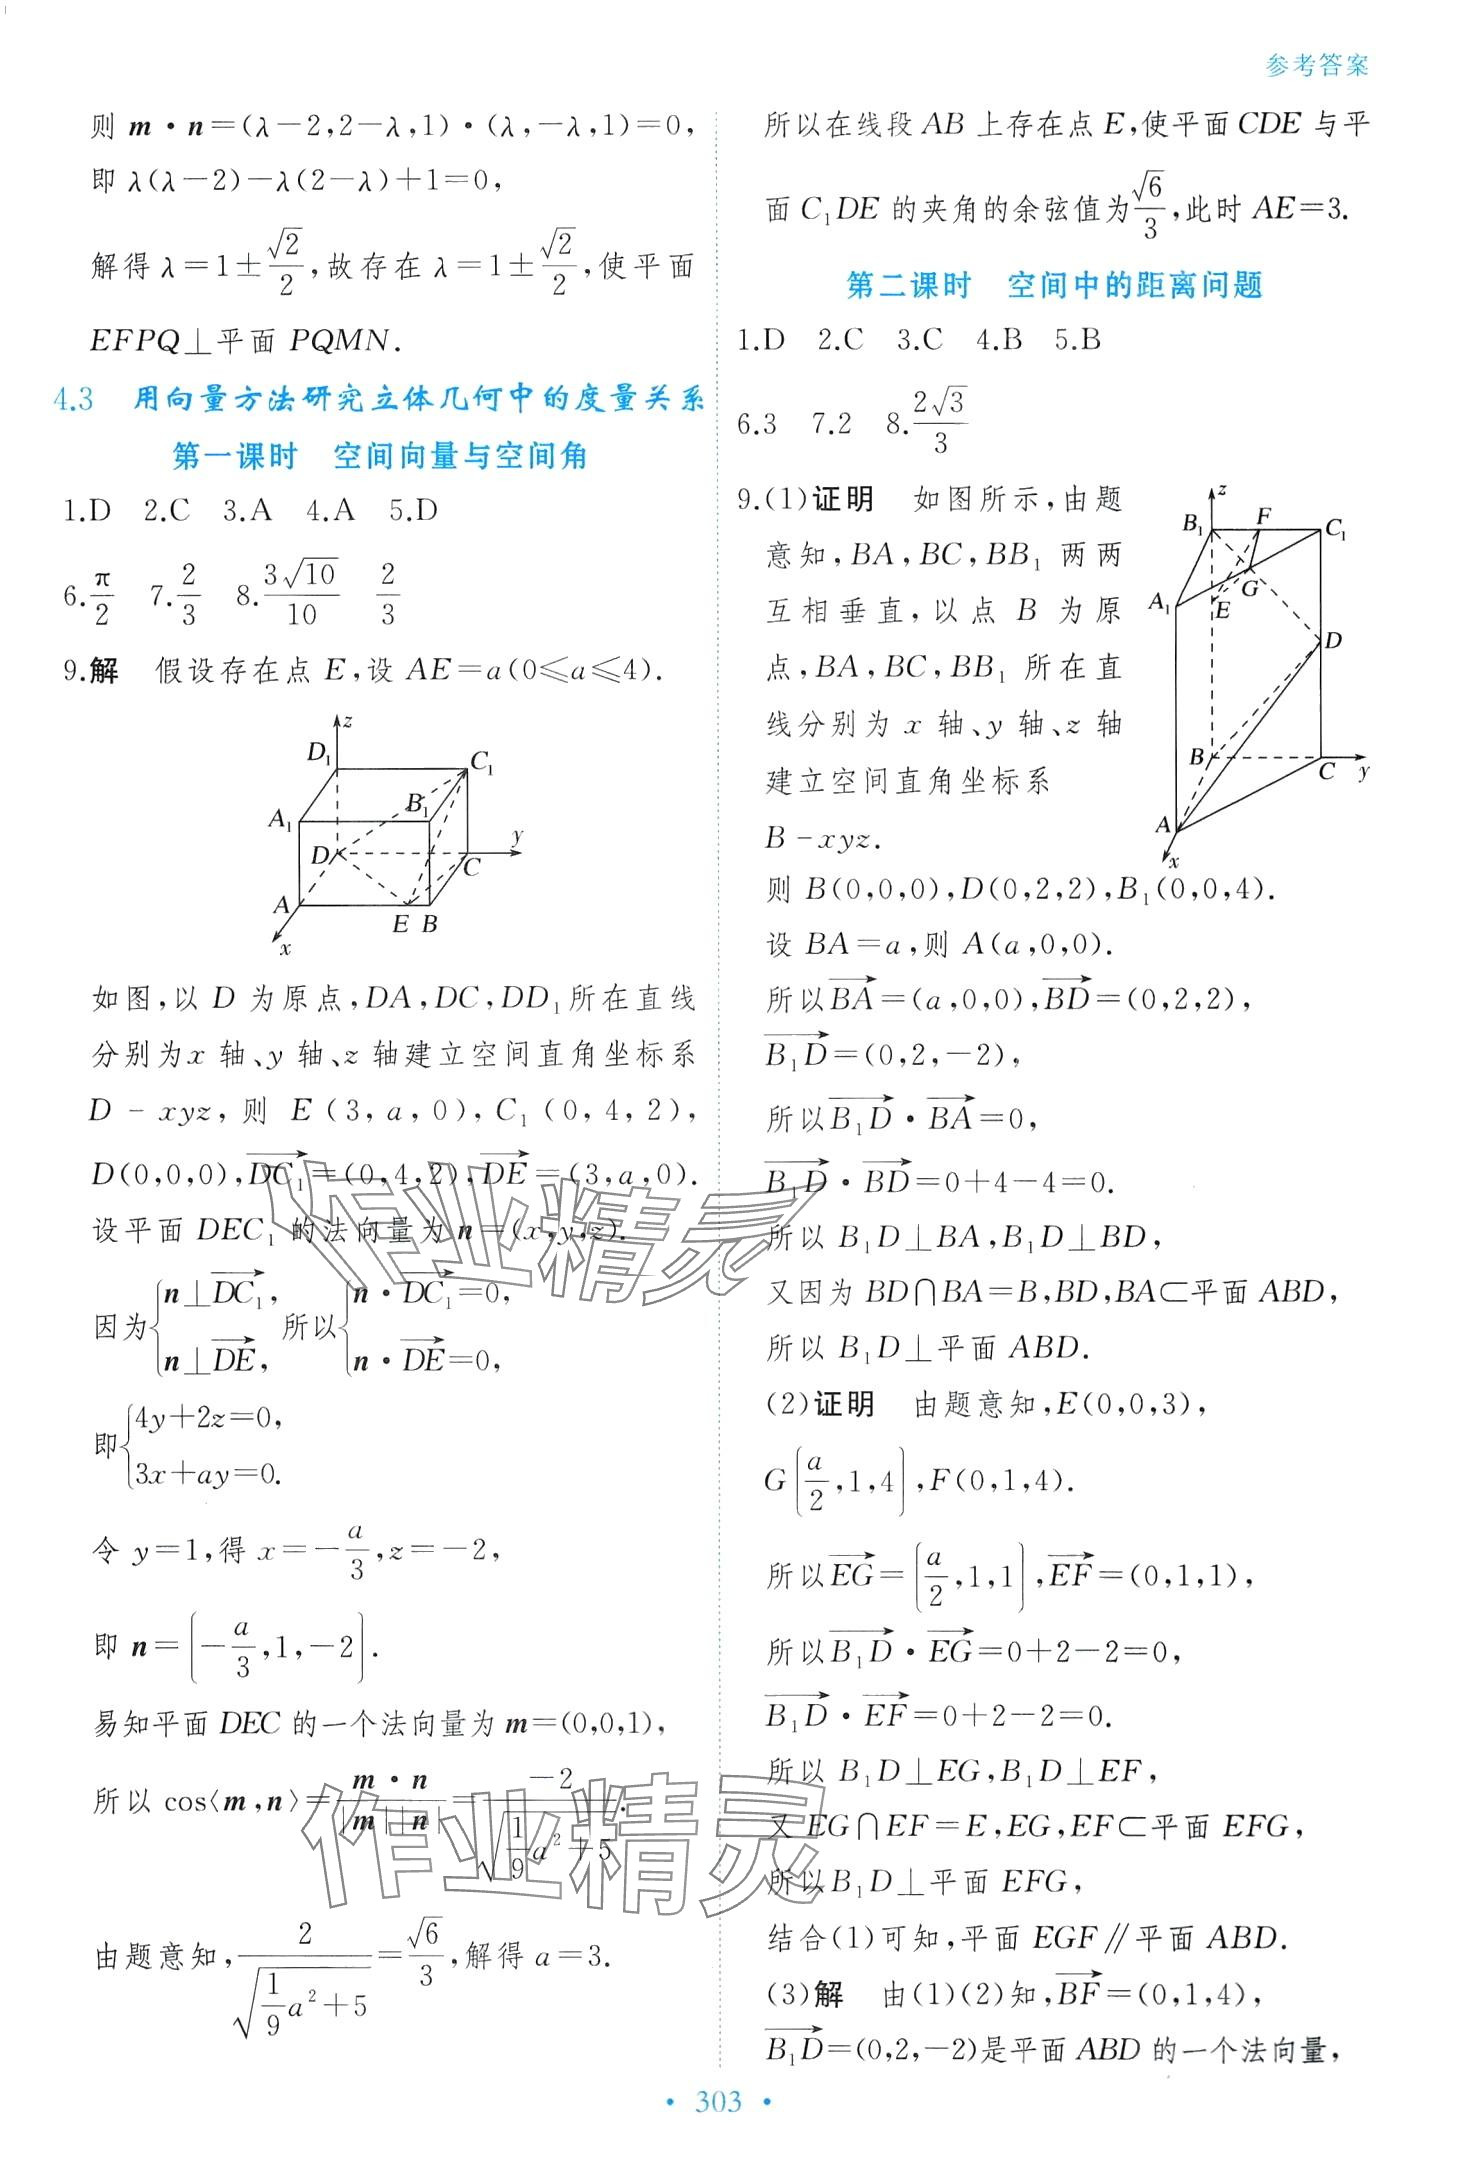 参考答案
则 m·n=(λ-2,2-λ,1)·(λ,-λ,1)=0,
即 λ(λ-2)-λ(2-λ)+1=0,
解得 λ=1±√2/2,故存在 λ=1±√2/2,使平面
EFPQ⊥平面 PQMN.
4.3 用向量方法研究立体几何中的度量关系
第一课时 空间向量与空间角
1.D 2.C 3.A 4.A 5.D
6.π/2 7.2/3 8.3√10/10 2/3
9.解 假设存在点 E,设 AE=a(0≤a≤4).
z
D₁
C₁
B₁
A₁
D
C
y
A
E
B
x
如图,以 D 为原点,DA,DC,DD₁所在直线
分别为x 轴、y 轴、z 轴建立空间直角坐标系
D-xyz,则 E(3,a,0),C₁(0,4,2),
D(0,0,0),DC₁→=(0,4,2),DE→=(3,a,0).
设平面 DEC₁ 的法向量为 n=(x,y,z).
因为{n⊥DC₁→, n⊥DE→, 所以{n·DC₁→=0, n·DE→=0,
即{4y+2z=0, 3x+ay=0.
令 y=1,得 x=-a/3,z=-2,
即 n=(-a/3,1,-2).
易知平面 DEC 的一个法向量为 m=(0,0,1),
所以 cos⟨m,n⟩=m·n/|m||n|=-2/√(1/9a²+5).
由题意知,2/√(1/9a²+5)=√6/3,解得 a=3.
所以在线段 AB 上存在点 E,使平面 CDE 与平
面 C₁DE 的夹角的余弦值为√6/3,此时 AE=3.
第二课时 空间中的距离问题
1.D 2.C 3.C 4.B 5.B
6.3 7.2 8.2√3/3
9.(1)证明 如图所示,由题
意知,BA,BC,BB₁ 两两
互相垂直,以点 B 为原
点,BA,BC,BB₁ 所在直
线分别为 x 轴、y 轴、z 轴
建立空间直角坐标系
B-xyz.
z
B₁
F
C₁
A₁
E
G
D
B
C
y
A
x
则 B(0,0,0),D(0,2,2),B₁(0,0,4).
设 BA=a,则 A(a,0,0).
所以BA→=(a,0,0),BD→=(0,2,2),
B₁D→=(0,2,-2),
所以B₁D→·BA→=0,
B₁D→·BD→=0+4-4=0.
所以 B₁D⊥BA,B₁D⊥BD,
又因为 BD∩BA=B,BD,BA⊂平面 ABD,
所以 B₁D⊥平面 ABD.
(2)证明 由题意知,E(0,0,3),
G(a/2,1,4),F(0,1,4).
所以EG→=(a/2,1,1),EF→=(0,1,1),
所以B₁D→·EG→=0+2-2=0,
B₁D→·EF→=0+2-2=0.
所以 B₁D⊥EG,B₁D⊥EF,
又 EG∩EF=E,EG,EF⊂平面 EFG,
所以B₁D⊥平面 EFG,
结合(1)可知,平面 EGF∥平面 ABD.
(3)解 由(1)(2)知,BF→=(0,1,4),
B₁D→=(0,2,-2)是平面 ABD 的一个法向量,
作业精灵
作业精灵
·303·